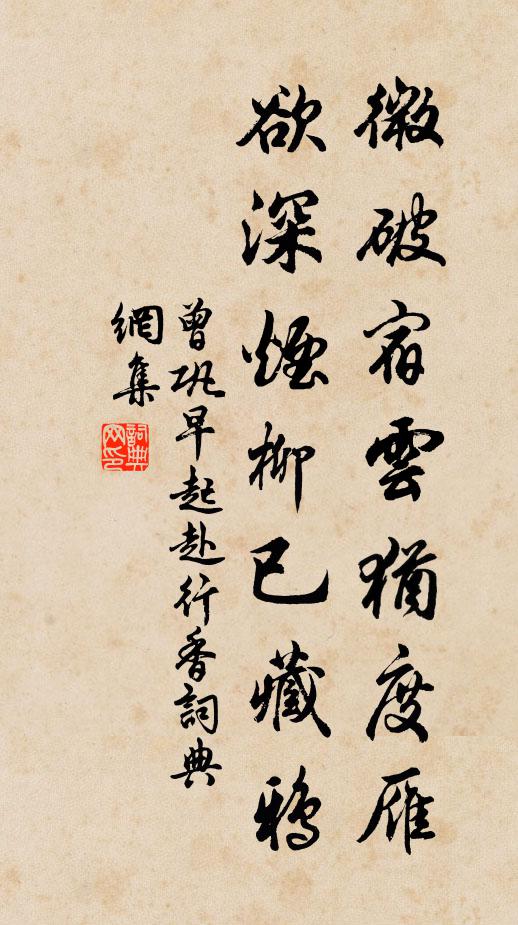 微破宿雲猶度雁
欲深煙柳已藏鴉
曾鞏早起赴行香詞典
網集
詞典
网印